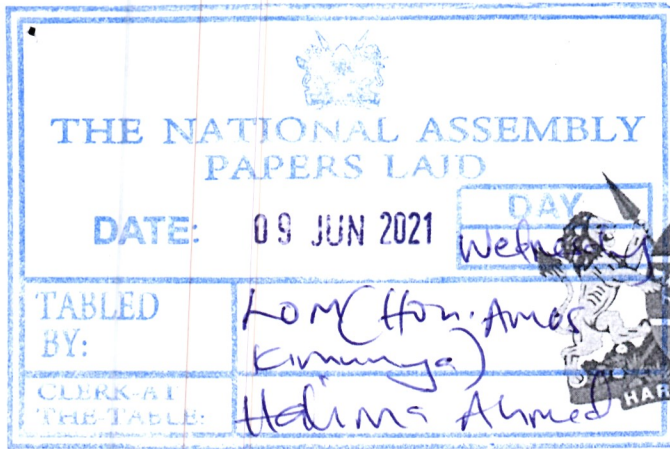 THE NATIONAL ASSEMBLY
PAPERS LAID
DATE: 09 JUN 2021
DAY
Wednesday
TABLED
BY:
LOM (Hon. Amos
Kimunya)
CLERK-AT
THE-TABLE:
Halima Ahmed
HAR